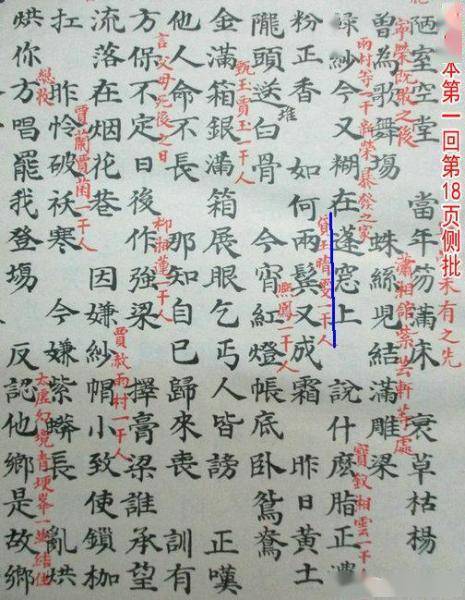 本第一回第18页侧批
未有之先
陋室空堂 當年笏滿床 衰草枯楊
寧榮既敗之後
瀟湘館紫芸軒等處
曾為歌舞場 蛛絲兒結滿雕梁
雨村等一干新榮暴發之家
綠紗今又糊在蓬窓上 說什麽脂正濃
寶釵湘雲一干人
粉正香 如何兩鬢又成霜 昨日黃土
玉晴雯一干人
堆
隴頭送白骨 今宵紅燈帳底卧鴛鴦
熙鳳一干人
金滿箱銀滿箱展眼乞丐人皆謗 正嘆
甄玉賈玉一干人
他人命不長 那知自已歸來喪 訓有
言父母死後之日
方保不定日後作强梁 擇膏梁誰承望
柳湘蓮一干人
流落在烟花巷 因嫌紗帽小致使鎖枷
賈赦雨村一干人
扛 昨怜破袄寒 今嫌紫蟒長 亂烘
賈蘭賈菌一干人
烘你方唱罷我登塲 反認他鄉是故鄉
總收
太虛幻境青埂峯一并結住